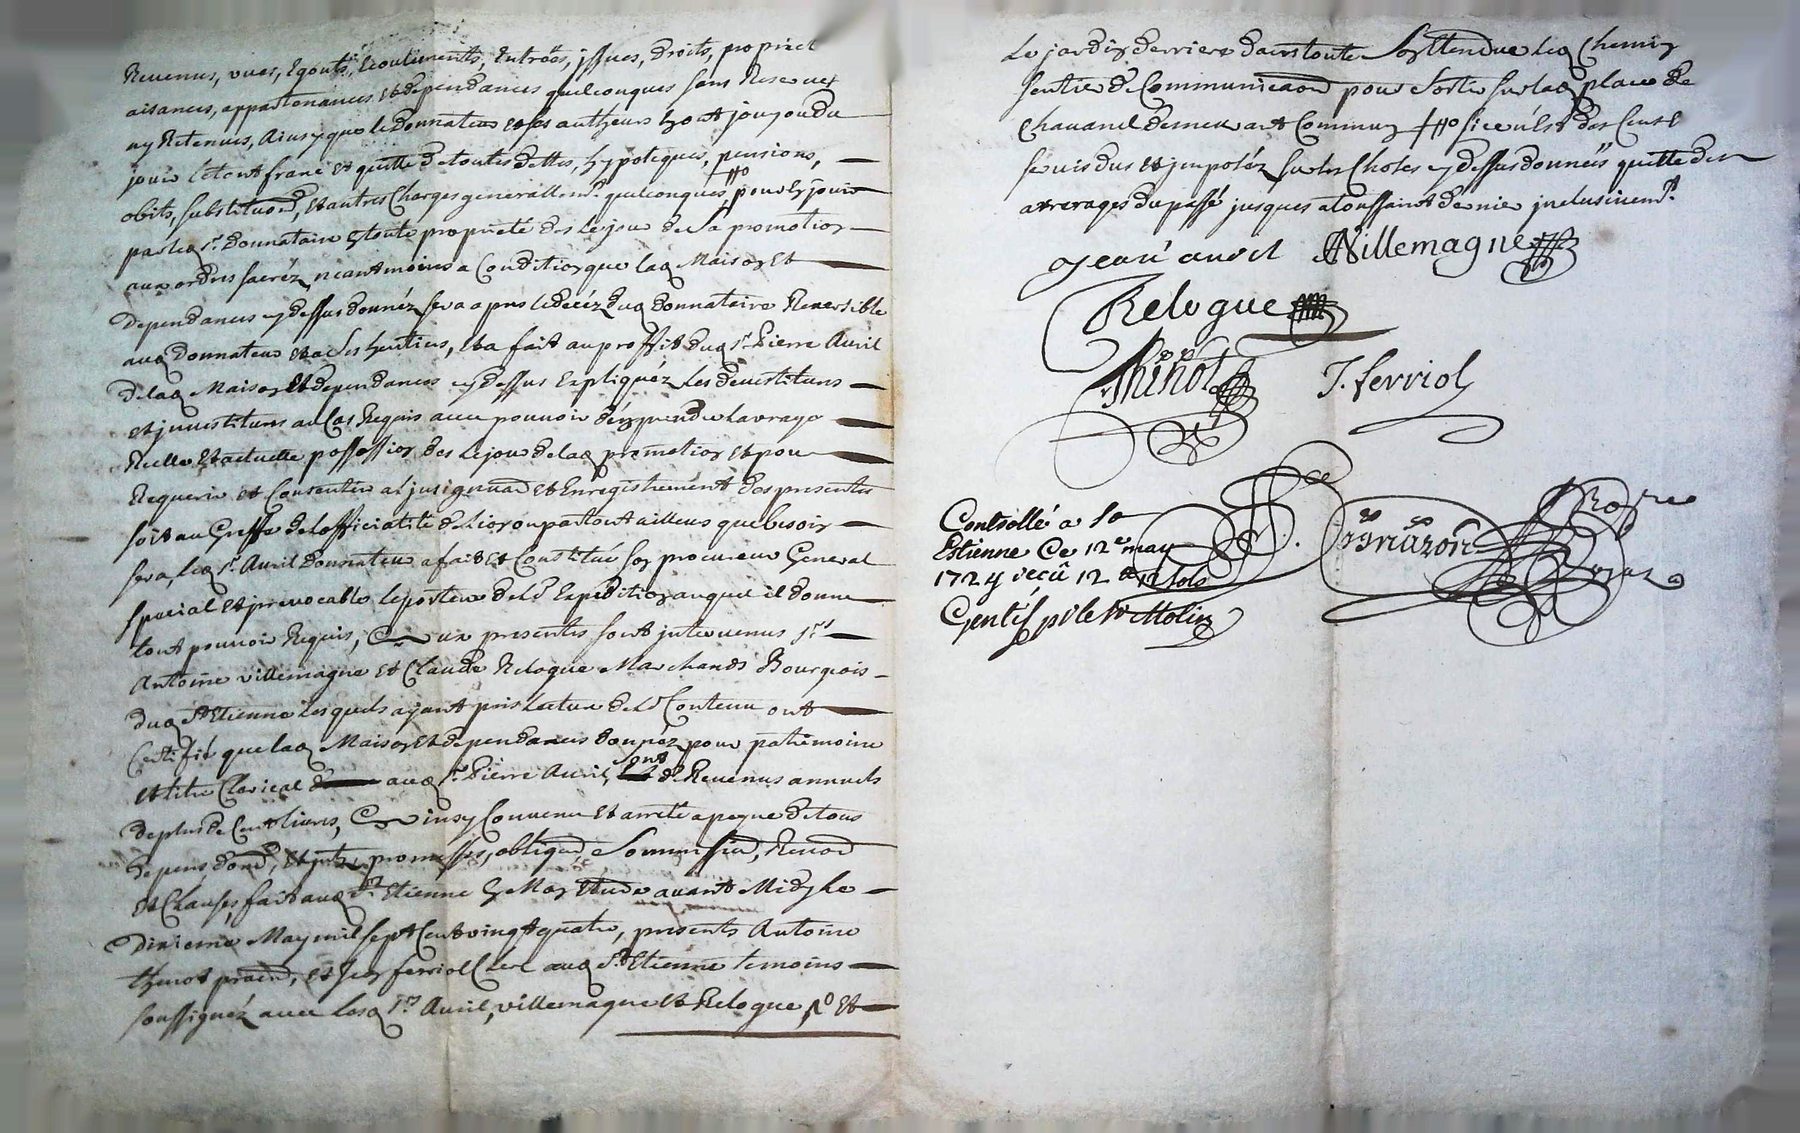 Revenus, vues, Egouts, Ecoulements, Entrées, jssues, droits, propriet
aisances, appartenances et dependances quelconques sans Reserves
ny Retenues, Ainsy que le donnateur et ses autheurs En ont jouy ou du
jouir le tout franc et quitte de toutes dettes, hypoteques, pensions,
obits, substituon, et autres Charges generallemt. quelconques, pour En jouir
par led sr. donnataire En toute proprieté des le jour de Sa promotion
aux ordres sacréz, neantmoins a Condition que lad Maison Et
dependances cy dessus donnéz sera apres le decéz dud donnataire Reversible
aud donnateur et a Ses heritiers, et a fait au proffit dud sr. Pierre Avril
de lad Maison Et dependances cy dessus Expliquéz Les devestitures
et jnvestitures au Cas Requis avec pouvoir d'en prendre la vraye
Reelle Et actuelle possession des le jour de lad promotion Et pour
Requerir et Consentir a l'jnsignuaon et Enregistrement des presentes
soit au Greffe de lofficialité de Lion ou partout ailleurs que besoin
sera, led sr. Avril donnateur a fait et Constitué son procureur General
special Et jrrevocable le porteur de Ld Expedition auquel il donne
tout pouvoir Requis, Et aux presentes sont jntervenus srs
Antoine villemagne et Claude Relogue Marchands Bourgeois
dud St Etienne lesquels ayant pris lecture de Ld Contenu ont
Certifié que lad Maison Et dependances donnéz pour patrimoine
et titre Clerical aud sr. Pierre Avril, sont de Revenus annuels
de plus de Cent livres, Et insy Convenu Et arreté a peyne de tous
depens, dom, Et jnts, promesses, obligaon, Soumission, Renoon
et Clauses, fait aud St Etienne En Mon Etude avant Midy Le
dixieme May mil sept Cent vingt quatre, presents Antoine
thinot praticn, et Jean ferriol Clerc aud St Etienne temoins
soussignéz avec lesd srs. Avril, villemagne et Relogue, Et
Le jardin derriere dans toute Son Etendue led Chemin
sentier de Communicaon pour Sortir sur lad place de
Chavanel demeurant Commun sice n'Est des Cens Et
servis dus et jmposéz sur les Choses cy dessus donnéés quitte des
arrerages du passé jusques a toussaint dernier jnclusivemt.
Jean avril Villemagne
Relogue
Thinot J. ferriol
Controllé a St
Estienne Ce 12e may
1724 reçû 12 # 12 sols
Gentil pr le Sr Molin